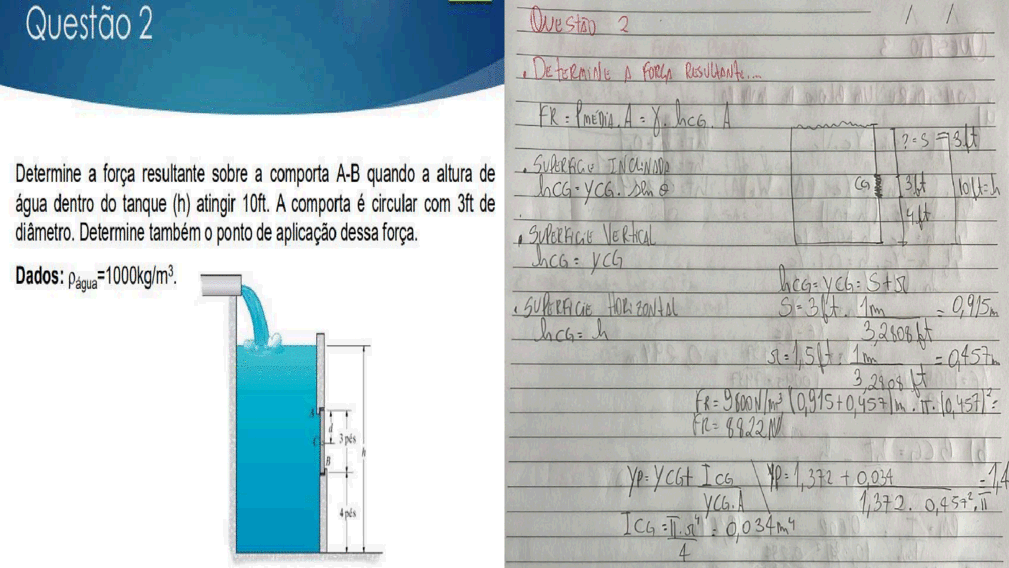 Questão 2
Determine a força resultante sobre a comporta A-B quando a altura de
água dentro do tanque (h) atingir 10ft. A comporta é circular com 3ft de
diâmetro. Determine também o ponto de aplicação dessa força.
Dados: ρágua=1000kg/m³.
A
d
C
3 pés
h
B
4 pés
/ /
QUESTÃO 2
. DETERMINE A FORÇA RESULTANTE...
FR = PMEDIA. A = γ. hCG. A
? = S = 3ft
. SUPERFICIE INCLINADA
hCG = YCG. sen θ
CG
3ft
10ft = h
4ft
. SUPERFICIE VERTICAL
hCG = YCG
hCG = YCG = S + r
. SUPERFICIE HORIZONTAL
hCG = h
S = 3ft . 1m / 3,2808 ft = 0,915m
r = 1,5ft . 1m / 3,2808 ft = 0,457m
FR = 9800N/m³ (0,915 + 0,457)m . π . (0,457)² =
FR = 8822N
YP = YCG + ICG / YCG.A
YP = 1,372 + 0,034 / 1,372. 0,457². π = 1,4
ICG = π.r⁴ / 4 = 0,034m⁴